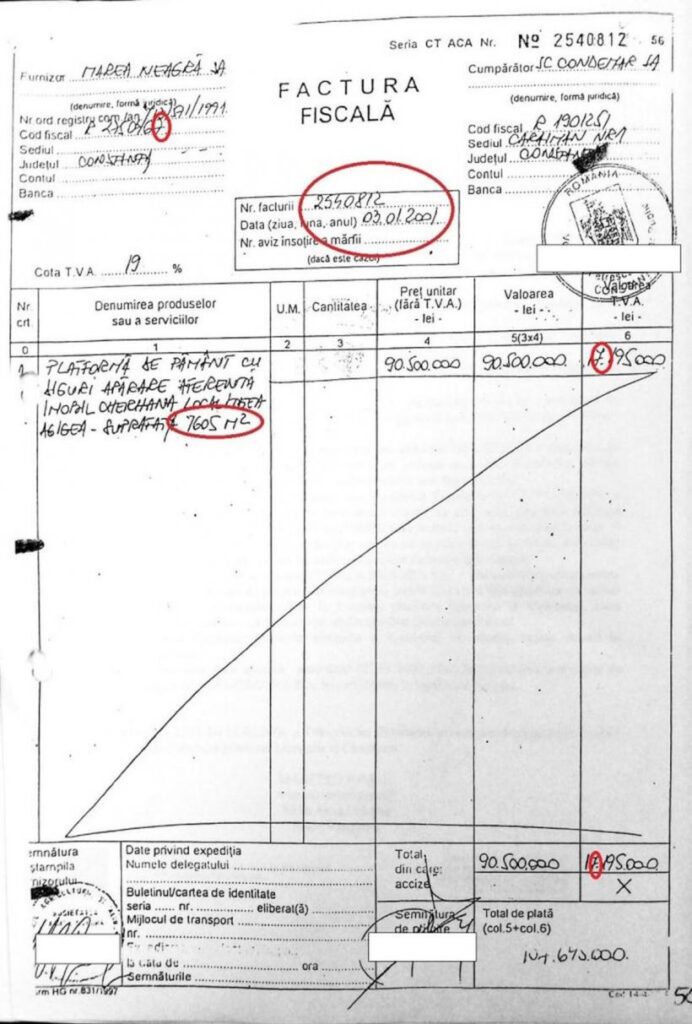 Seria CT ACA Nr. Nº 2540812 56
Furnizor MAREA NEAGRĂ SA
(denumire, formă juridică)
Nr ord registru com/an /1991
Cod fiscal R
Sediul
Județul CONSTANȚA
Contul
Banca
FACTURA
FISCALĂ
Cumpărător SC CONDEMAR SA
(denumire, formă juridică)
Cod fiscal R 1901251
Sediul CARAIMAN NR1
Județul CONSTANȚA
Contul
Banca
ROMANIA
Nr. facturii 2540812
Data (ziua, luna, anul) 03.01.2001
Nr. aviz însoțire a mărfii
(dacă este cazul)
Cota T.V.A. 19 %
Nr. crt. Denumirea produselor sau a serviciilor U.M. Cantitatea Preț unitar (fără T.V.A.) - lei - Valoarea - lei - Valoarea T.V.A. - lei -
0 1 2 3 4 5(3x4) 6
1 PLATFORMĂ DE PĂMÂNT CU 90.500.000 90.500.000 17.195000
DIGURI APĂRARE AFERENTĂ
IMOBIL CHERHANA LOCALITATEA
AGIGEA - SUPRAFAȚA 7605 M2
Semnătura
ștampila
furnizorului
Date privind expediția
Numele delegatului
Buletinul/cartea de identitate
seria nr. eliberat(ă)
Mijlocul de transport
nr.
la data de ora
Semnăturile
Total 90.500.000 17.195000
din care:
accize X
Semnătura
de primire
Total de plată
(col.5+col.6)
HG nr.831/1997